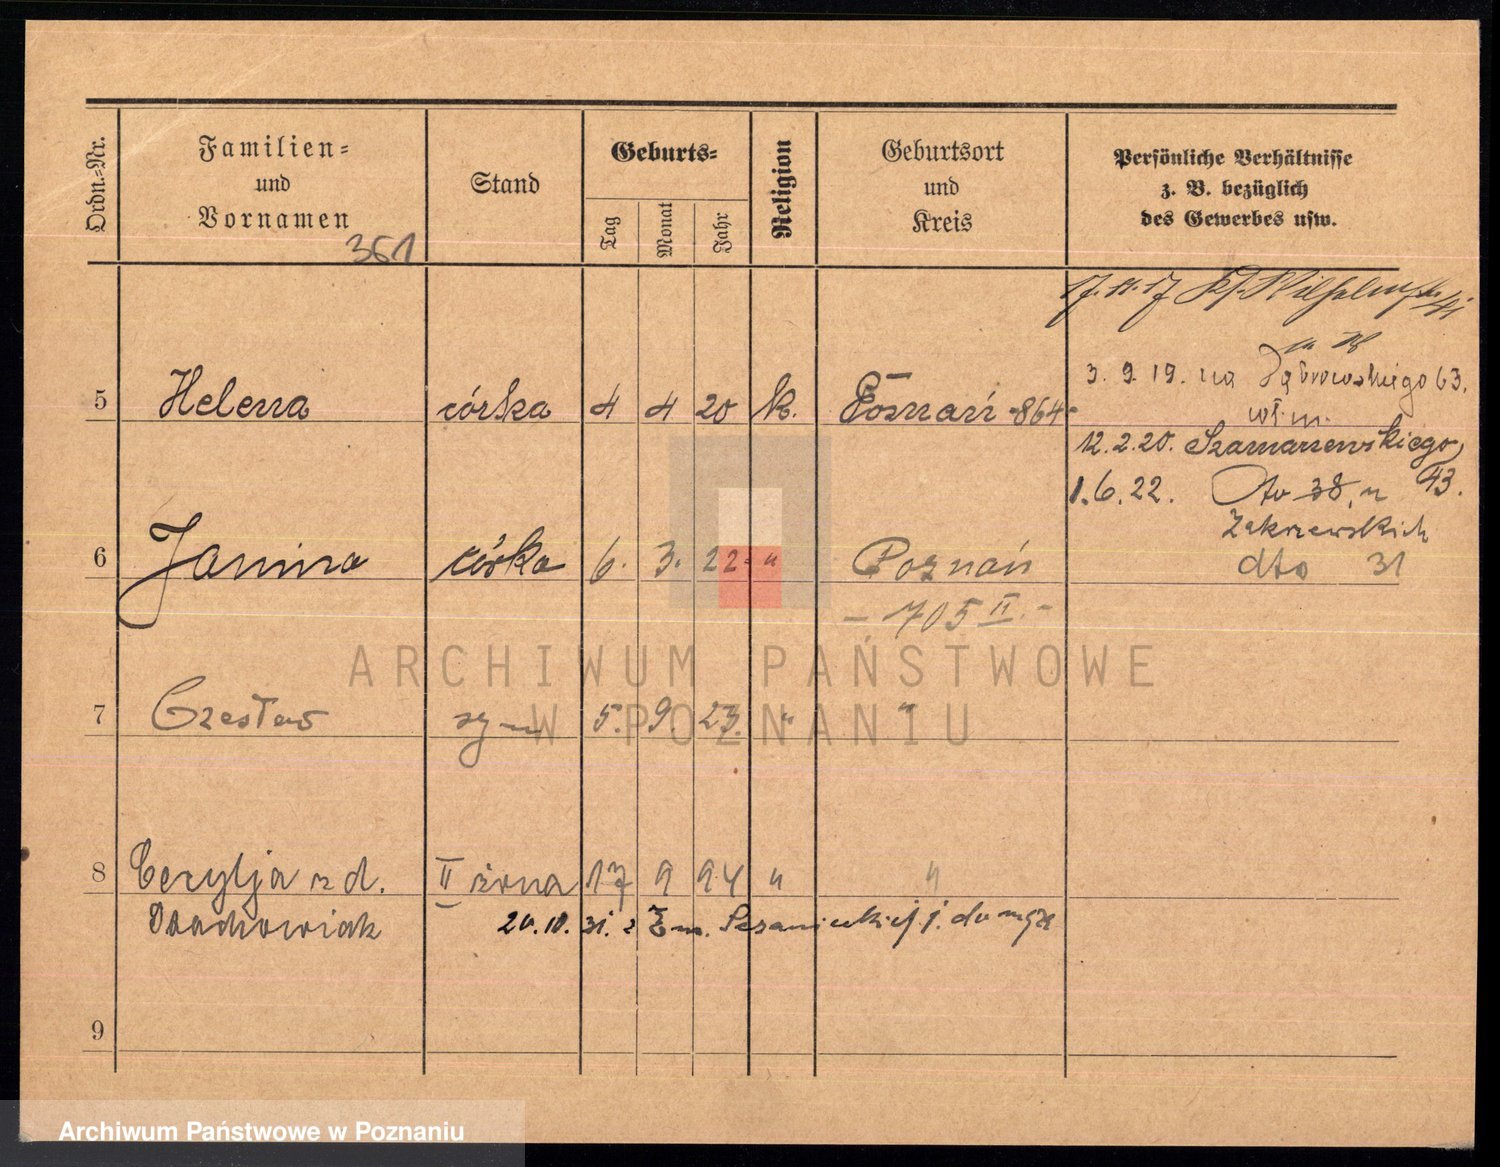 Ordn.-Nr.
Familien-
und
Vornamen
361
Stand
Geburts-
Tag
Monat
Jahr
Religion
Geburtsort
und
Kreis
Persönliche Verhältnisse
z. B. bezüglich
des Gewerbes usw.
17.11.17
3. 9. 19. na Dąbrowskiego 63.
5 Helena córka 4 4 20 k. Poznań -864-
12.2.20. Szamarzewskiego
43.
1.6.22. dto 38, u
Zakrzewskich
6 Janina córka 6. 3. 22. " Poznań
dto 31
- 705 II. -
7 Czesław syn 5. 9. 23. " "
8 Cecylja z d. II żona 17 9 94 " "
20.10.31. z j. do męża
9
ARCHIWUM PAŃSTWOWE
W POZNANIU
Archiwum Państwowe w Poznaniu